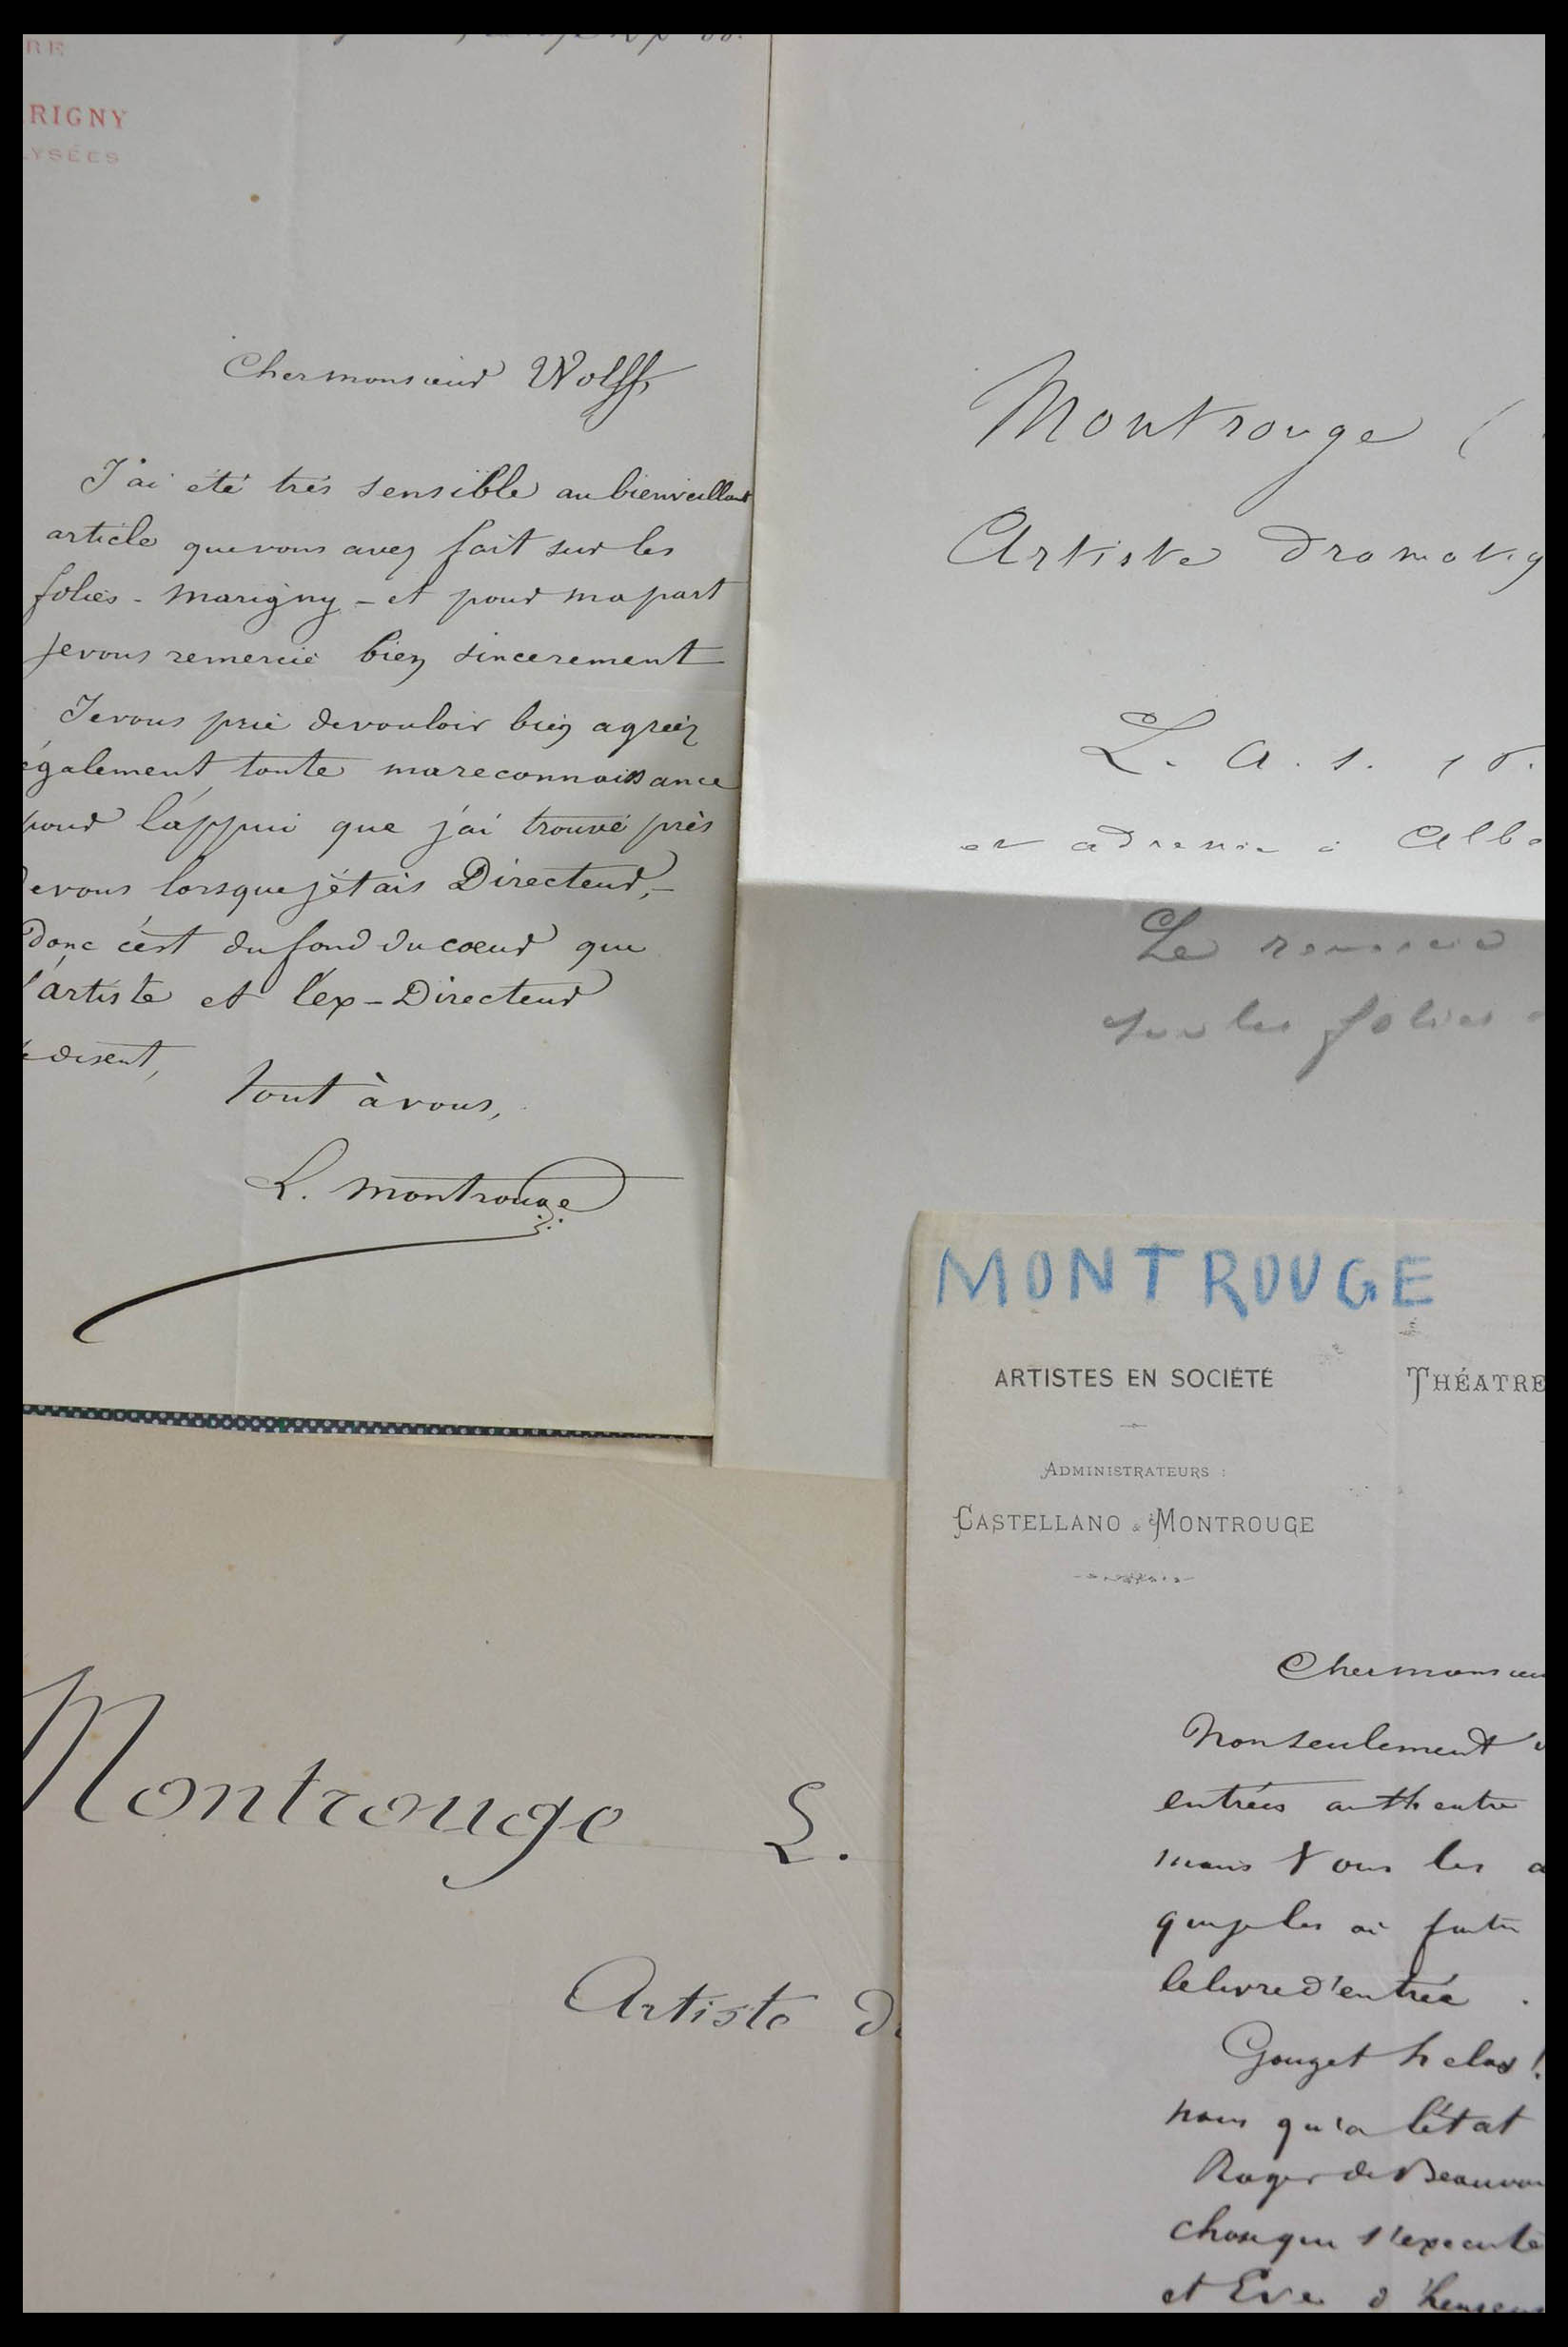 RE
RIGNY
LYSÉES
Cher monsieur Wolff,
J'ai été très sensible au bienveillant
article que vous avez fait sur les
folies - marigny - et pour ma part
je vous remercie bien sincerement
Je vous prie de vouloir bien agréer
également toute ma reconnaissance
pour l'appui que j'ai trouvé près
de vous lorsque j'étais Directeur,-
Donc c'est du fond du coeur que
l'artiste et l'ex-Directeur
disent,
tout à vous,
L. montrouge
Montrouge (
Artiste dramatiq
L. a. s.
et adressée à Alb
Le remercie
sur les folies
MONTROUGE
ARTISTES EN SOCIÉTÉ
THÉATRE
ADMINISTRATEURS :
CASTELLANO & MONTROUGE
Cher monsieu
Non seulement
entrées au théatre
mais vous les a
que je les ai faites
le livre d'entrée .
Gouget helas !
nous qu'a l'état
Roger de Beauvoi
chose qui s'execute
et Eve d'
Montrouge L.
Artiste d